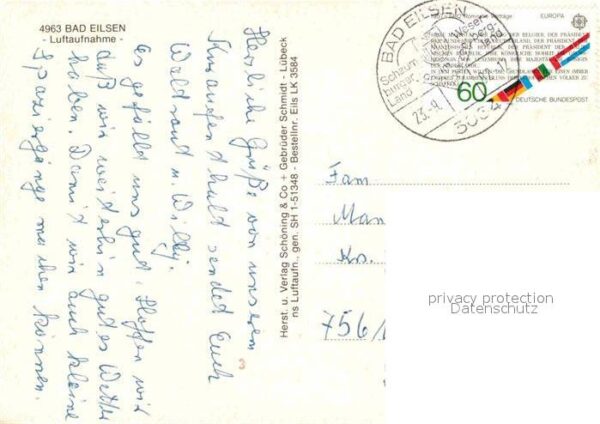 4963 BAD EILSEN
- Luftaufnahme -
Herzliche Grüße von unserem
Kuraufenthalt sendet Euch
Waltraut u. Willy.
Es gefällt uns gut. Hoffen wir
daß wir weiterhin gutes Wetter
haben. Damit wir auch kleine
Spaziergänge machen können.
Herst. u. Verlag Schöning & Co + Gebrüder Schmidt - Lübeck
ns Luftaufn., gen. SH 1-51348 - Bestellnr. Eils LK 3584
3
BAD EILSEN
Schaum
burger
Land
23.-9.
3064
EUROPA
60
DEUTSCHE BUNDESPOST
Fam
Man
Kn.
756/
privacy protection
Datenschutz